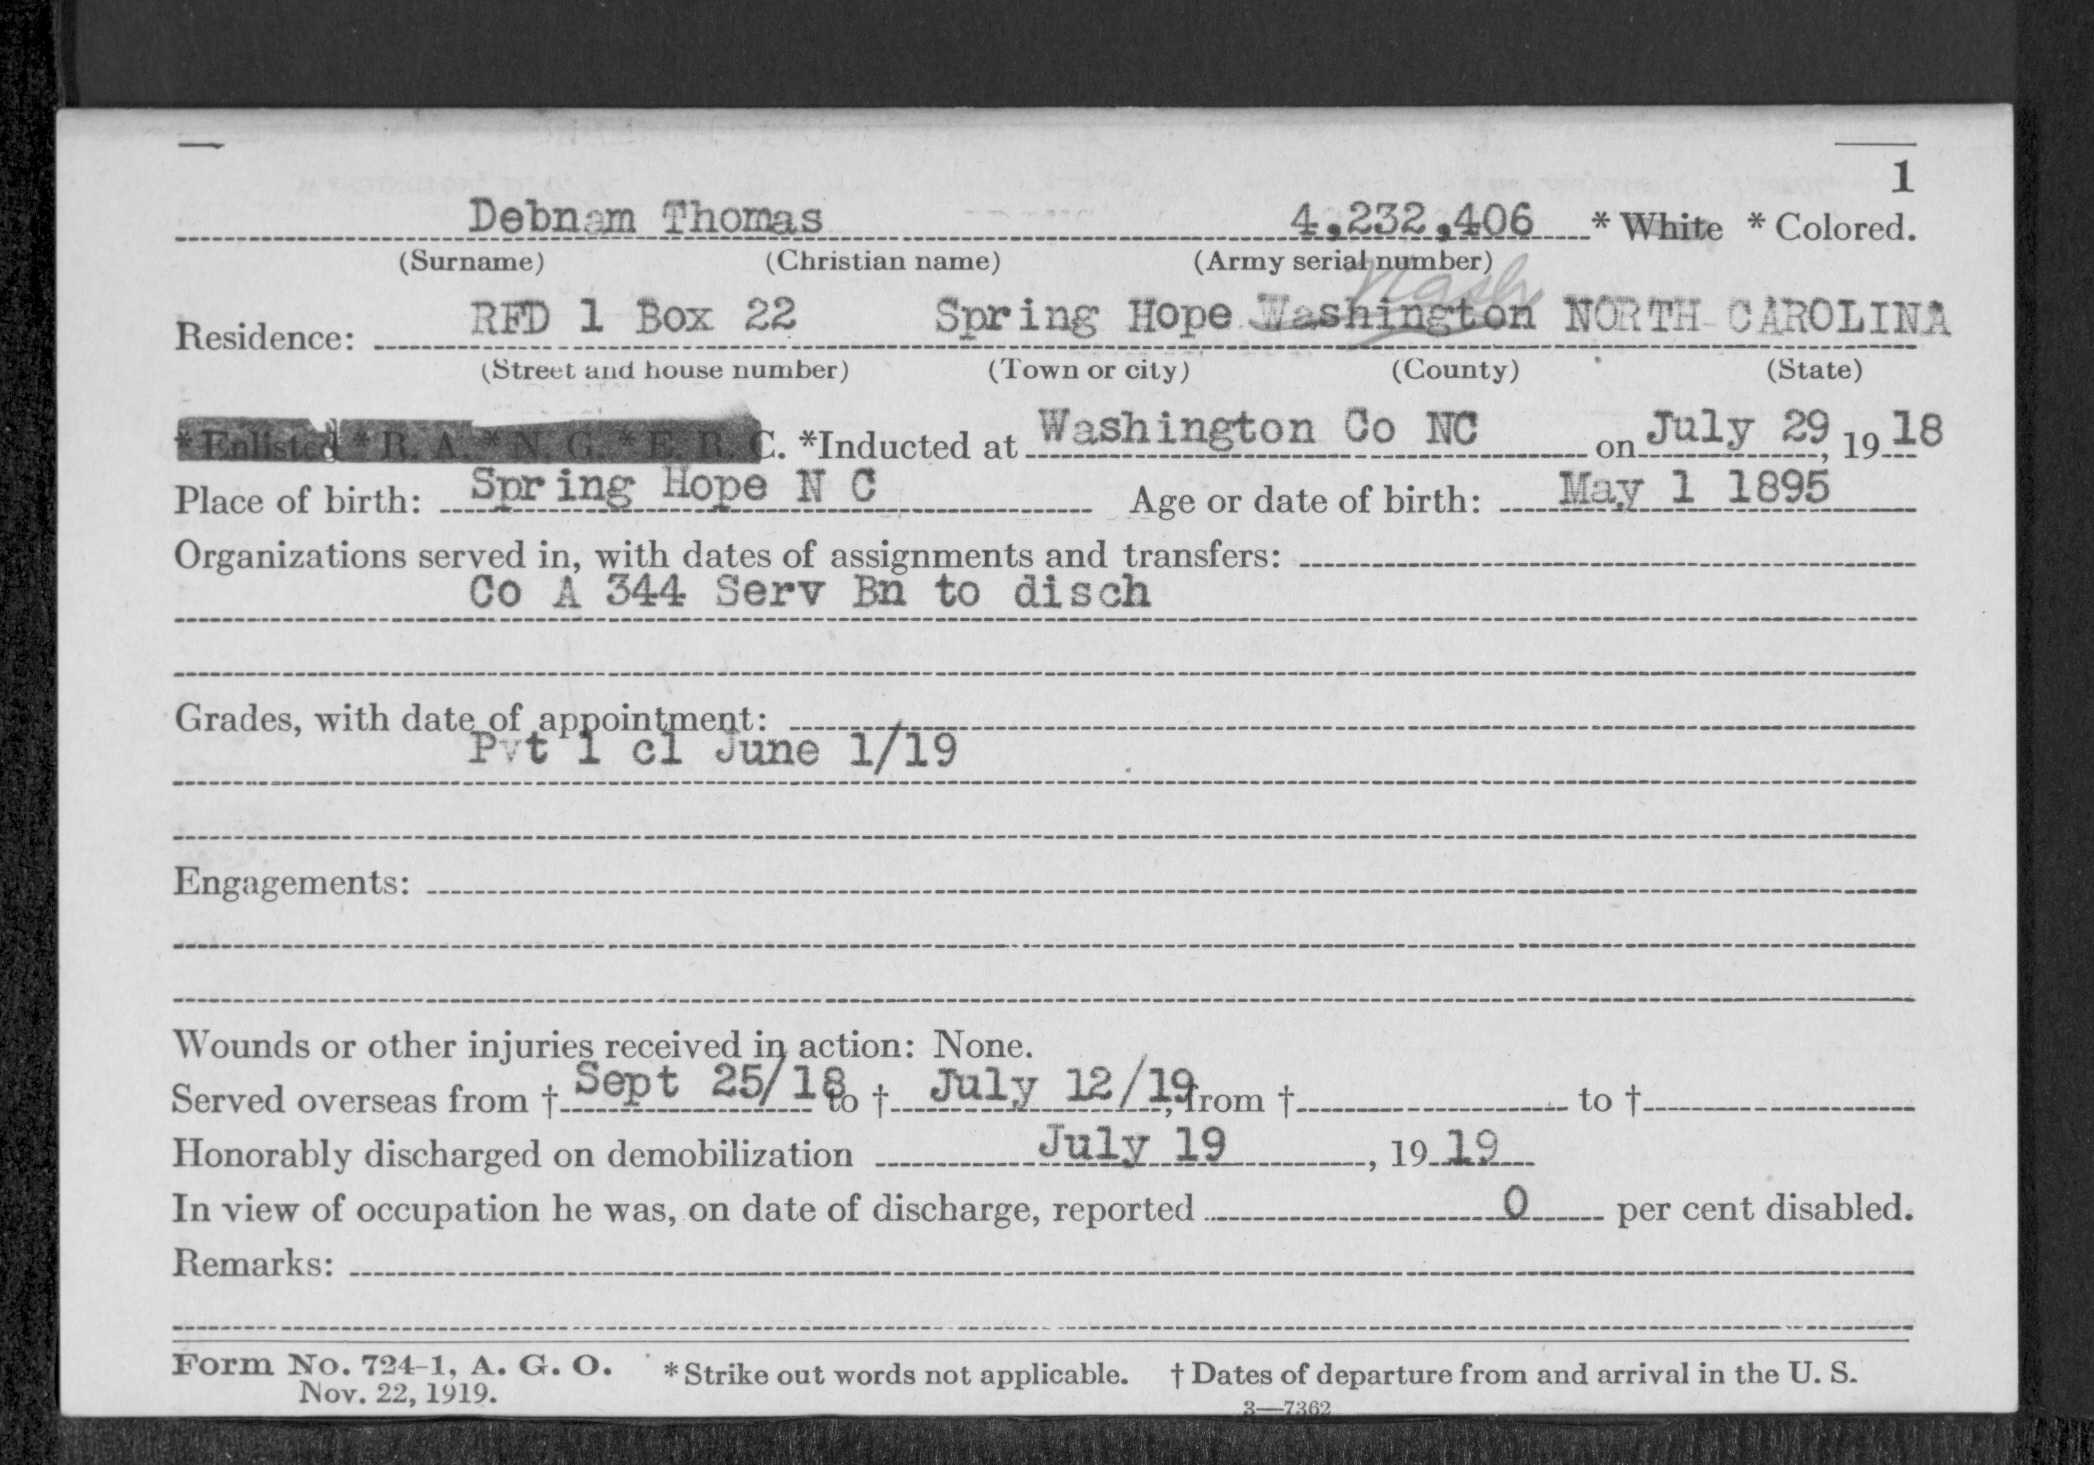 1
Debnam Thomas 4,232,406 * White * Colored.
(Surname) (Christian name) (Army serial number)
Nash
Residence: RFD 1 Box 22 Spring Hope Washington NORTH CAROLINA
(Street and house number) (Town or city) (County) (State)
* Enlisted * R. A. * N. G. * E. R. C. *Inducted at Washington Co NC on July 29, 1918
Place of birth: Spring Hope N C Age or date of birth: May 1 1895
Organizations served in, with dates of assignments and transfers:
Co A 344 Serv Bn to disch
Grades, with date of appointment:
Pvt 1 cl June 1/19
Engagements:
Wounds or other injuries received in action: None.
Served overseas from † Sept 25/18 to † July 12/19, from † to †
Honorably discharged on demobilization July 19, 1919
In view of occupation he was, on date of discharge, reported 0 per cent disabled.
Remarks:
Form No. 724-1, A. G. O. * Strike out words not applicable. † Dates of departure from and arrival in the U. S.
Nov. 22, 1919.
3—7362